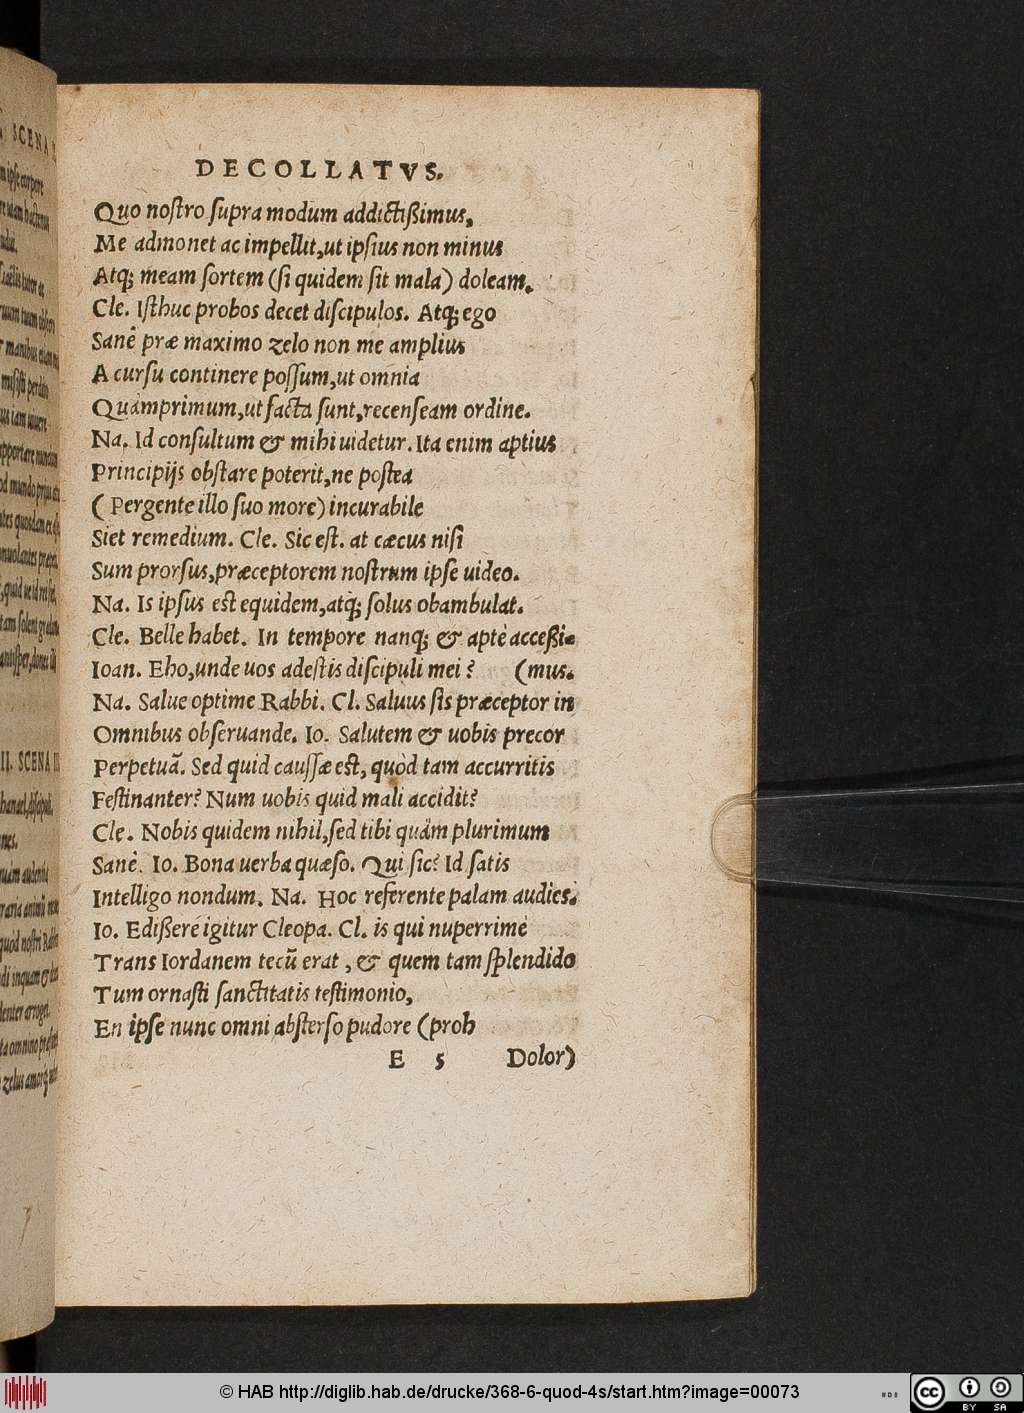 DECOLLATVS.
Quo nostro supra modum addictißimus,
Me admonet ac impellit, ut ipsius non minus
Atq; meam sortem (si quidem sit mala) doleam.
Cle. Isthuc probos decet discipulos. Atq; ego
Sanè præ maximo zelo non me amplius
A cursu continere possum, ut omnia
Quàmprimum, ut facta sunt, recenseam ordine.
Na. Id consultum & mihi uidetur. Ita enim aptius
Principijs obstare poterit, ne postea
(Pergente illo suo more) incurabile
Siet remedium. Cle. Sic est. at cæcus nisi
Sum prorsus, præceptorem nostrum ipse uideo.
Na. Is ipsus est equidem, atq; solus obambulat.
Cle. Belle habet. In tempore nanq; & aptè acceßi-
Ioan. Eho, unde uos adestis discipuli mei? (mus.
Na. Salue optime Rabbi. Cl. Saluus sis præceptor in
Omnibus obseruande. Io. Salutem & uobis precor
Perpetuã. Sed quid caussæ est, quòd tam accurritis
Festinanter? Num uobis quid mali accidit?
Cle. Nobis quidem nihil, sed tibi quàm plurimum
Sanè. Io. Bona uerba quæso. Qui sic? Id satis
Intelligo nondum. Na. Hoc referente palam audies.
Io. Edißere igitur Cleopa. Cl. is qui nuperrimè
Trans Iordanem tecũ erat, & quem tam splendido
Tum ornasti sanctitatis testimonio,
En ipse nunc omni absterso pudore (proh
E 5 Dolor)
© HAB http://diglib.hab.de/drucke/368-6-quod-4s/start.htm?image=00073